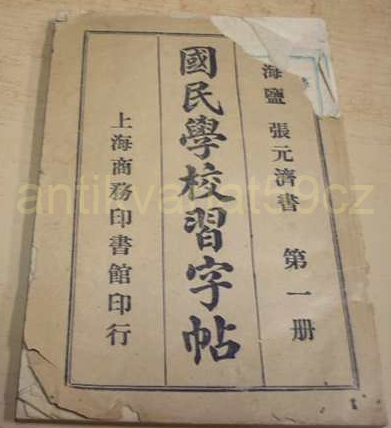 海鹽 張元濟書 第一册
國民學校習字帖
上海商務印書館印行
antikvariat59cz